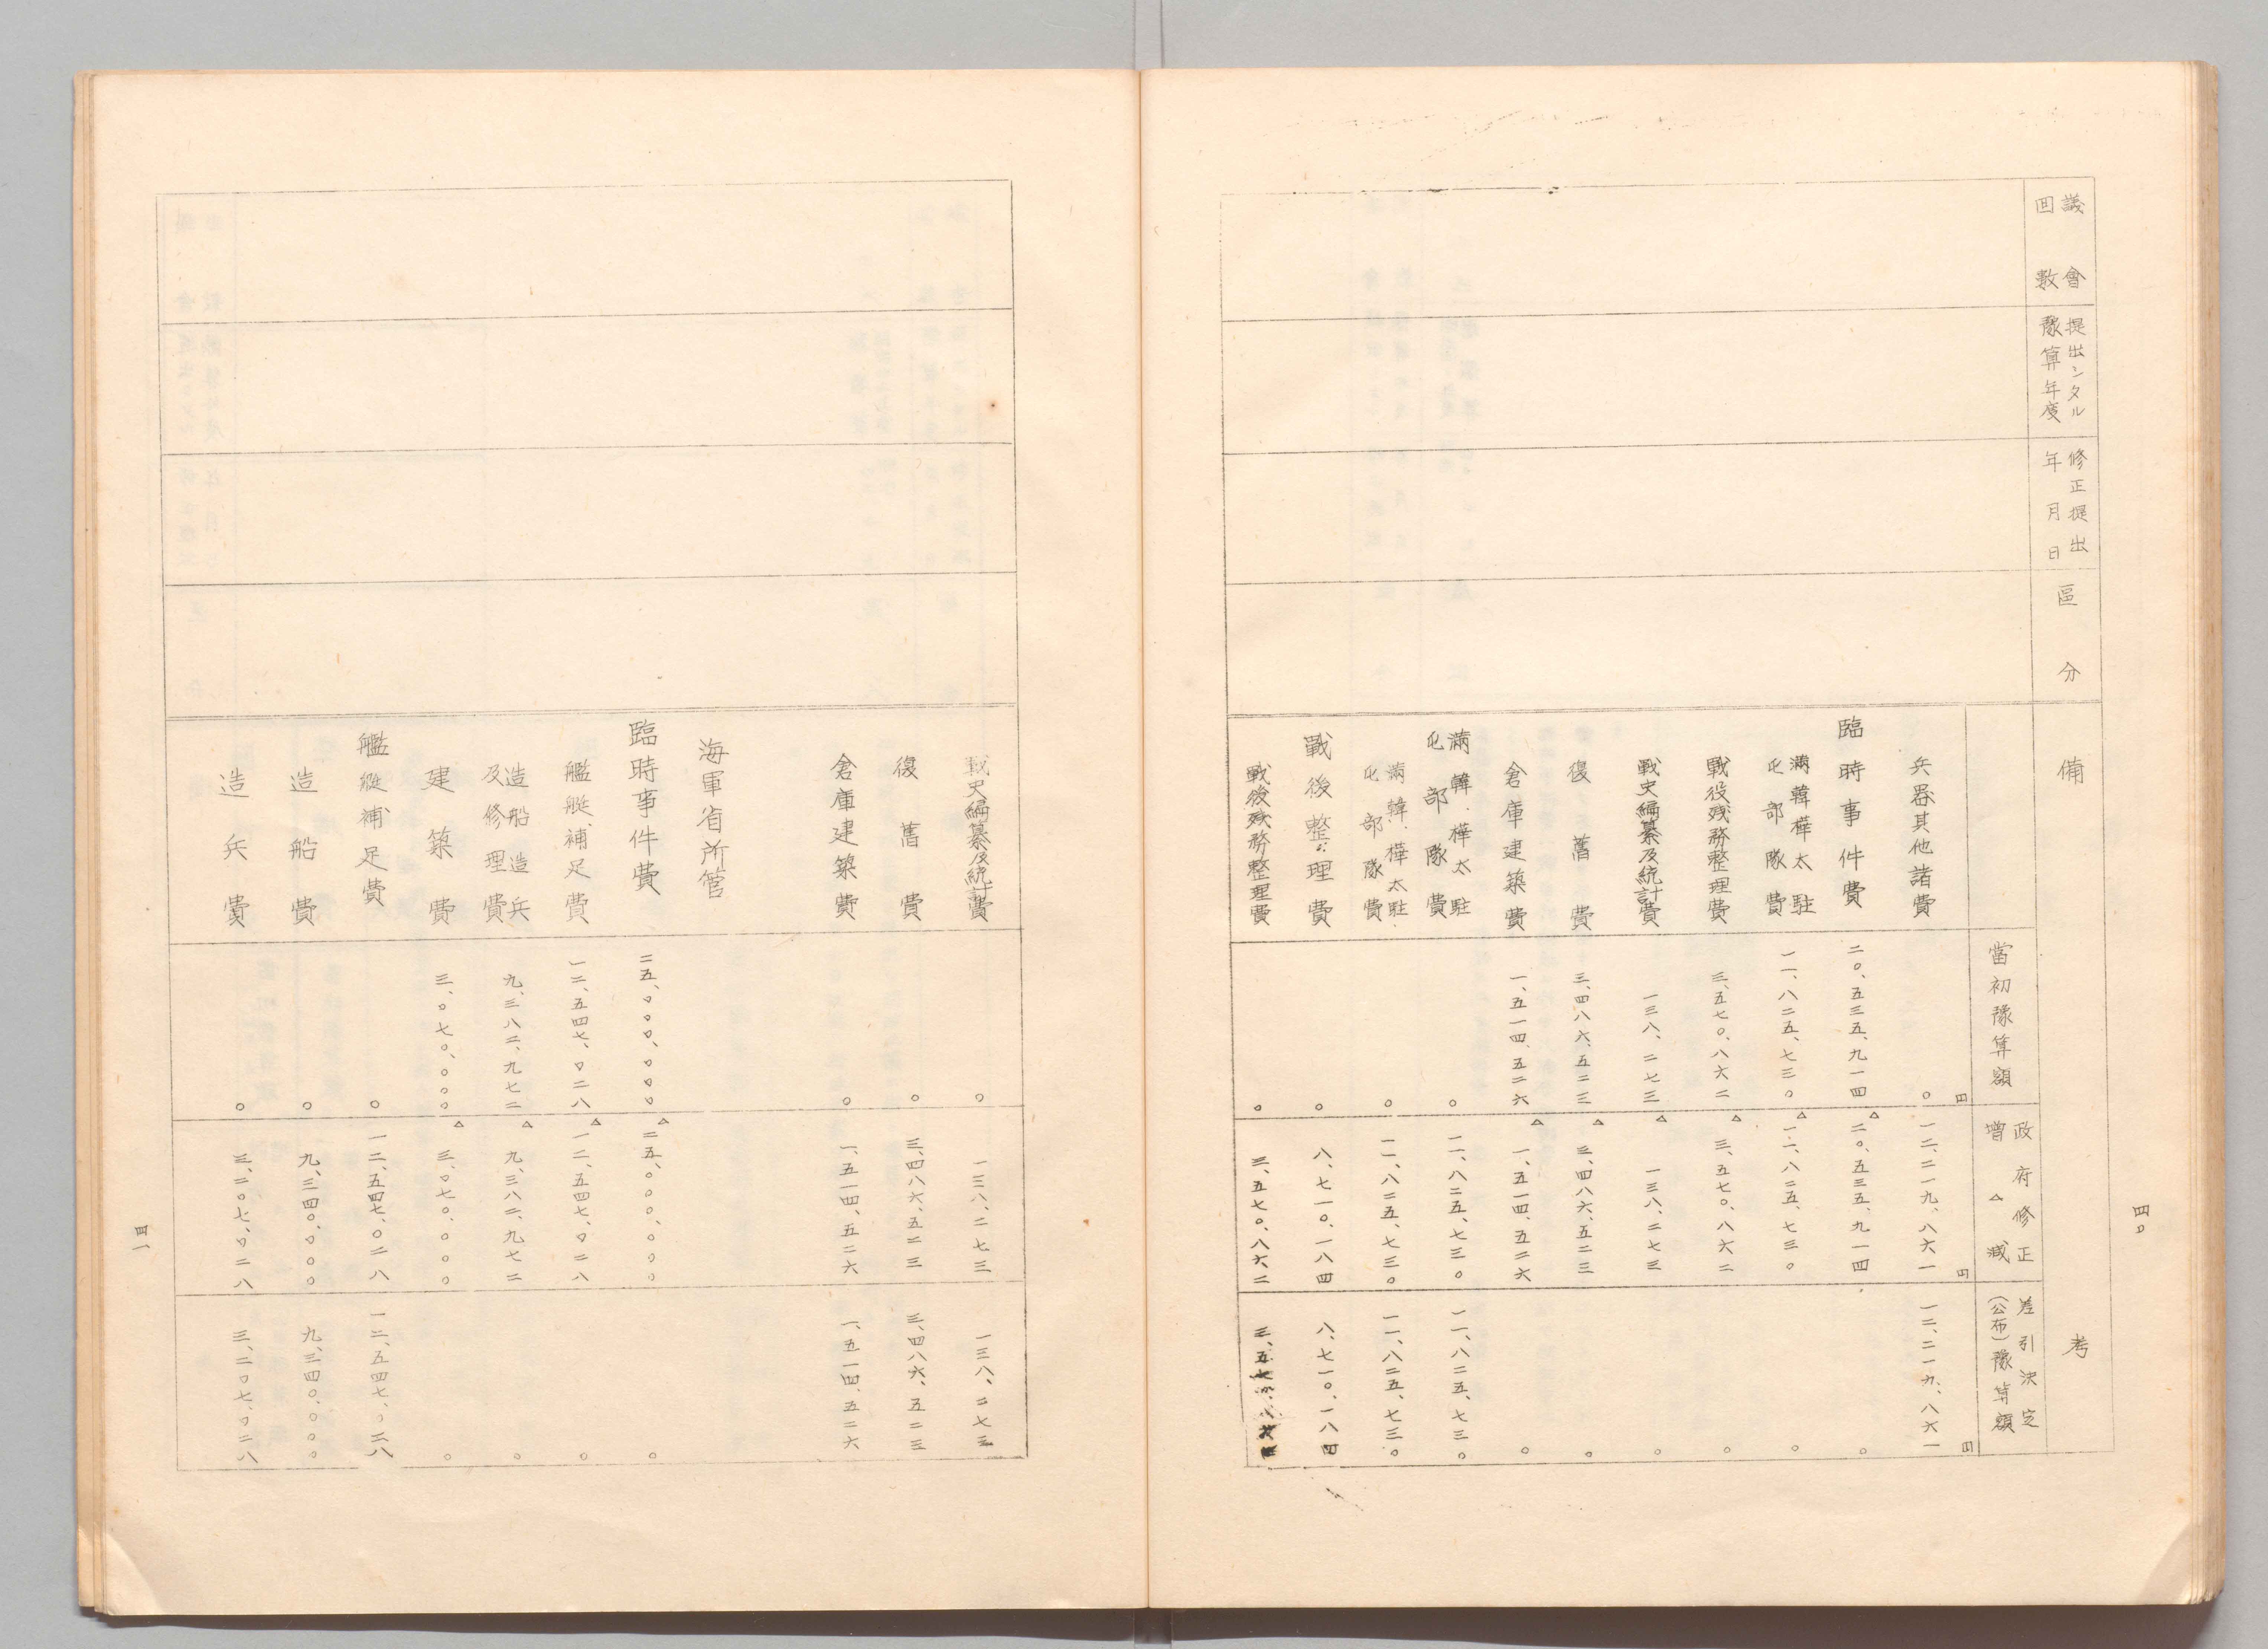 四〇
議會
回數
提出シタル
豫算年度
修正提出
年月日
區分
備考
當初豫算額
政府修正
增△減
差引決定
(公布)豫算額
兵器其他諸費 円 〇 円 一二、二一九、八六一 円 一二、二一九、八六一
臨時事件費 二〇、五三五、九一四 △ 二〇、五三五、九一四 〇
滿韓樺太駐
屯部隊費 一一、八二五、七三〇 △ 一一、八二五、七三〇 〇
戰役殘務整理費 三、五七〇、八六二 △ 三、五七〇、八六二 〇
戰史編纂及統計費 一三八、二七三 △ 一三八、二七三 〇
復舊費 三、四八六、五二三 △ 三、四八六、五二三 〇
倉庫建築費 一、五一四、五二六 △ 一、五一四、五二六 〇
滿韓、樺太駐
屯部隊費 〇 一一、八二五、七三〇 一一、八二五、七三〇
滿韓、樺太駐
屯部隊費 〇 一一、八二五、七三〇 一一、八二五、七三〇
戰後整理費 〇 八、七一〇、一八四 八、七一〇、一八四
戰後殘務整理費 〇 三、五七〇、八六二
戰史編纂及統計費 〇 一三八、二七三 一三八、二七三
復舊費 〇 三、四八六、五二三 三、四八六、五二三
倉庫建築費 〇 一、五一四、五二六 一、五一四、五二六
海軍省所管
臨時事件費 二五、〇〇〇、〇〇〇 △ 二五、〇〇〇、〇〇〇 〇
艦艇補足費 一二、五四七、〇二八 △ 一二、五四七、〇二八 〇
造船造兵
及修理費 九、三八二、九七二 △ 九、三八二、九七二 〇
建築費 三、〇七〇、〇〇〇 △ 三、〇七〇、〇〇〇 〇
艦艇補足費 〇 一二、五四七、〇二八 一二、五四七、〇二八
造船費 〇 九、三四〇、〇〇〇 九、三四〇、〇〇〇
造兵費 〇 三、二〇七、〇二八 三、二〇七、〇二八
四一